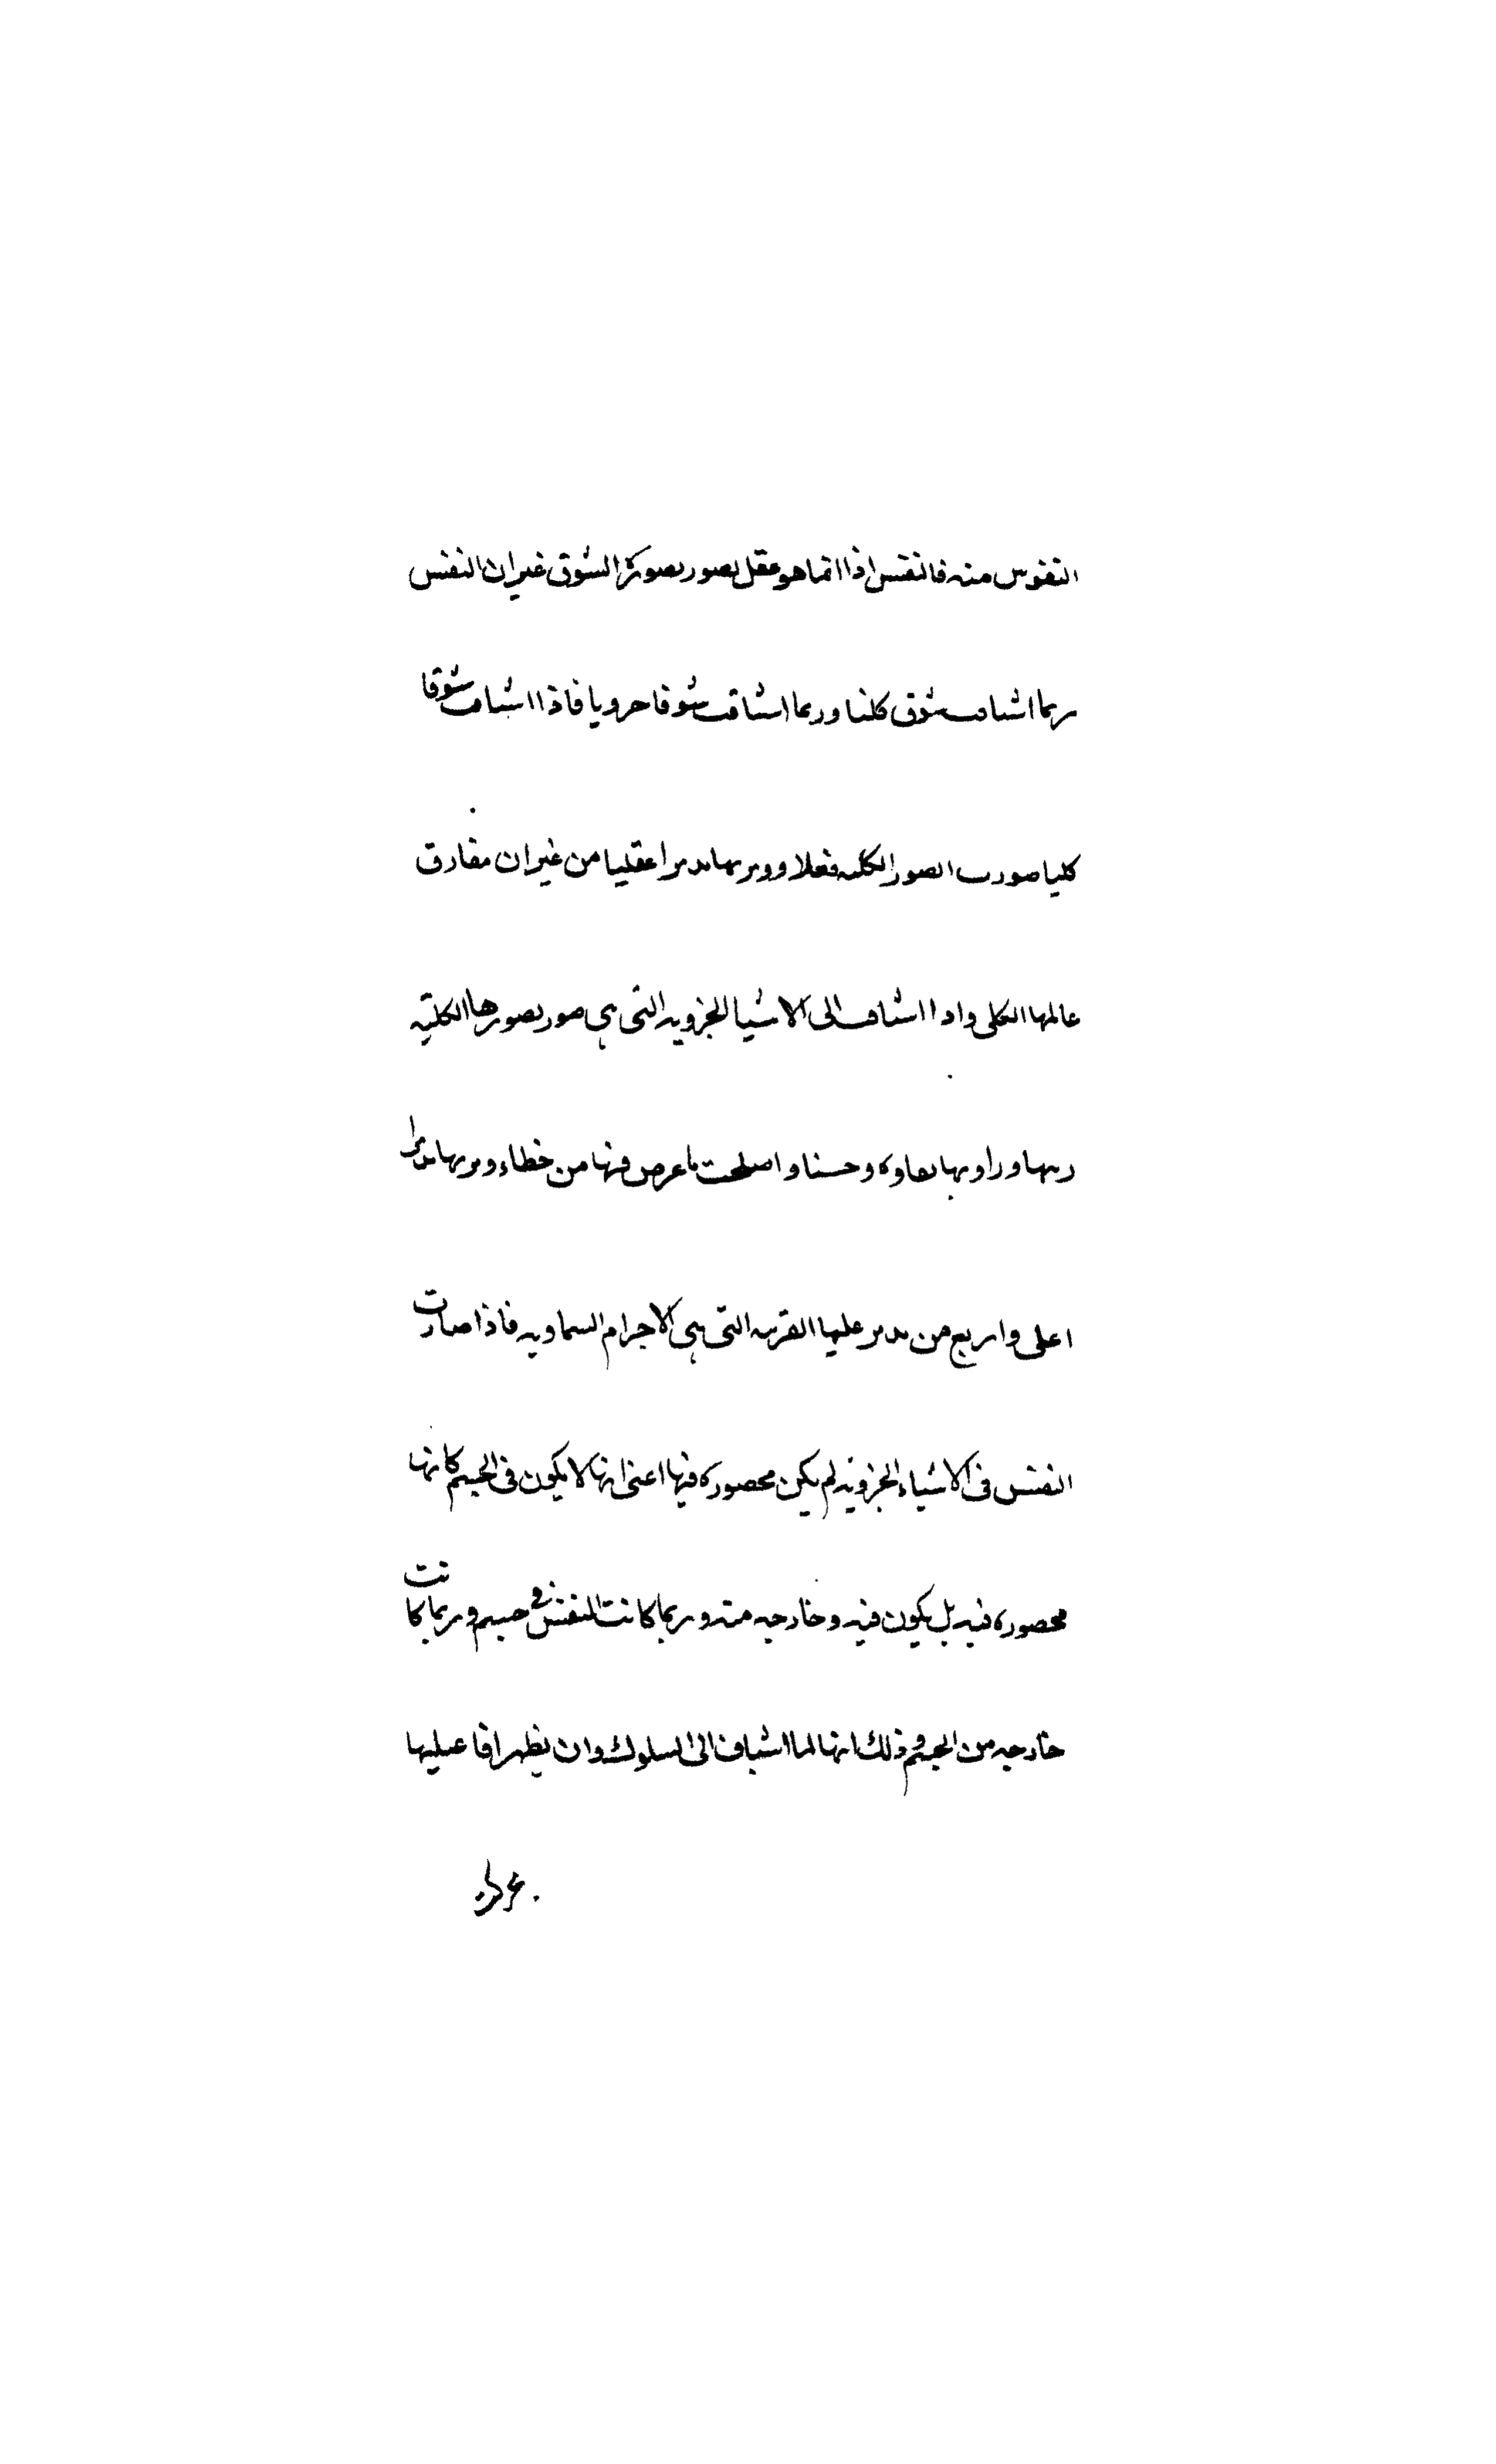 النفوس منه فالنفس اذا انما هو عقل تصور بصورة الشوق غير ان النفس
ربما اشتاقت شوق كليا وربما اشتاقت شوقا جرويا فاذا اشتاقت شوقا
كليا صورت الصور الكليه فعلا ودبرتها تدبيرا عقليا من غير ان مفارق
عالمها الكلى واذا اشتاقت الى الاشيا الجزويه التى هى صور بصورها الكليه
زينتها وزادتها نقاوة وحسنا واصلحت ما عرض فيها من خطاء ودبرتها تدبيرا
اعلى واربع من تدبر علتها القريبه التى هى الاجرام السماويه فاذا صارت
النفس فى الاشياء الجزويه لم يكن محصوره فيها اعنى انها لا يكون فى الجسم كانها
محصوره فيه بل يكون فيه وخارجه منه وربما كانت النفس فى جسم وربما كانت
خارجه من الجسم وذلك انها لما اشتاقت الى السلوك وان يظهر افاعيلها